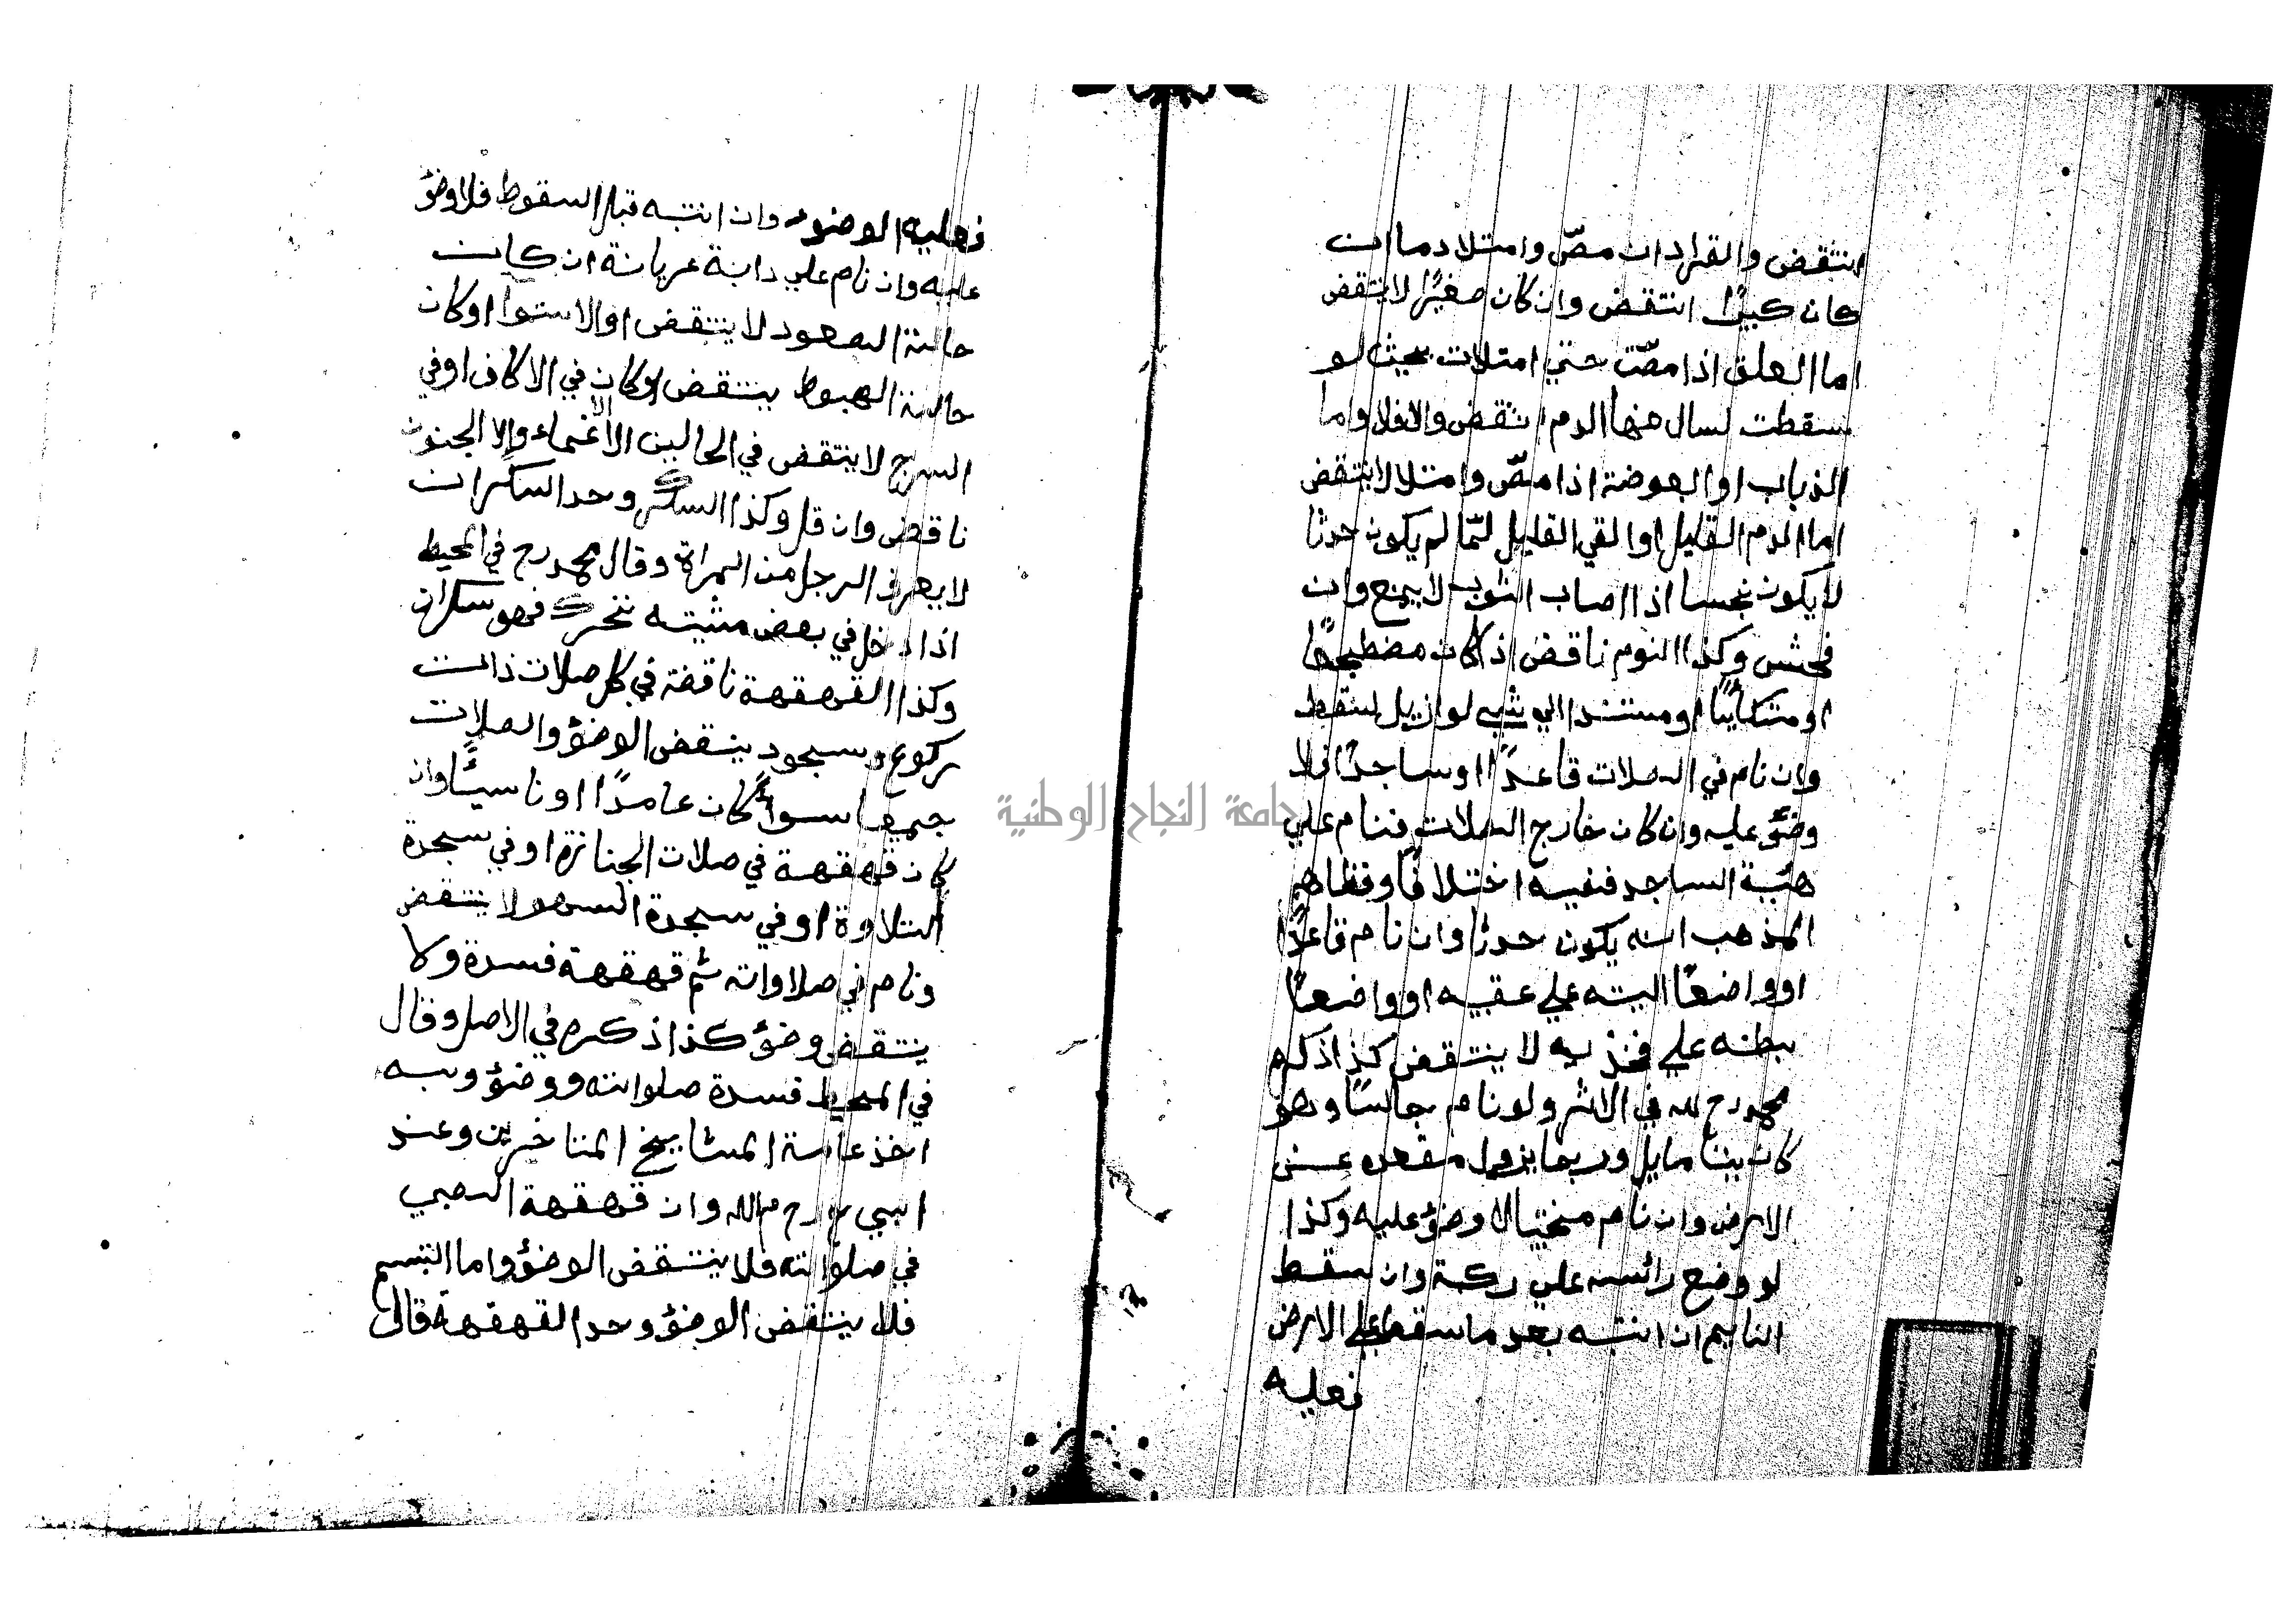 انتقض والقراد ان مصّ وامتلا دما ان
كان كبيرًا انتقض وان كان صغيرًا لا ينتقض
اما العلق اذا مصّت حتي امتلات بحيث لو
سقطت لسال منها الدم انتقض والا فلا واما
الذباب او البعوضة اذا مصّ وامتلا لا ينتقض
اما الدم القليل او القي القليل لمّا لم يكون حدثا
لا يكون نجسا اذا اصاب الثوب لا يمنع وان
فحش وكذا النوم ناقض اذ اكان مضطجعًا
او متكائيًا او مستندا الي شي لو ازيل لسقط
وان نام في الصلات قاعدًا او ساجدًا فلا
وضؤ عليه وان كان خارج الصلات فنام علي
هئية الساجد ففيه اختلافًا وفظاهر
المذهب انه يكون حدثا وان نام قاعدًا
او واضعًا اليته علي عقبيه او واضعًا
بطنه علي فخذيه لا ينتقض كذا ذكره
محمد رح لله في الاثر ولو نام جالسًا وهو
كان يتمايل وربما يزول مقعده عن
الارض وان نام منحنيا لا وضؤ عليه وكذا
لو وضع رائسه علي ركبة وان سقط
النايم ان انتبه بعد ما سقط علي الارض
فعليه
فعليه الوضوء وان انتبه قبل السقوط فلا وضؤ
عليه وان نام علي دابة عريانة ان كانت
حالة الصعود لا ينتقض او الاستوا او كان
حالة الهبوط ينتقض او كان في الاكاف او في
السرج لا ينتقض في الحالين الاغماء والا الجنون
ناقض وان قل وكذا السكر وحد السكران
لا يعرف الرجل من المراة وقال محمد رح في المحيط
اذا دخل في بعض مشيته تحرك فهو سكران
وكذا القهقهة ناقضة في كل صلات ذات
ركوع وسجود ينقض الوضؤ والصلات
جميعا سواءً كان عامدًا او ناسيًا وان
كان قهقهة في صلات الجنازة او في سجدة
التلاوة او في سجدة السهو لا ينتقض
ونام في صلاواته ثم قهقهة فسدة ولا
ينتقض وضؤ كذا ذكره في الاصل وقال
في المحيط فسدة صلواته ووضؤ وبه
اخذ عامة المشايخ المتاخرين وعند
ابي رحم الله وان قهقهة الصبي
في صلواته فلا ينتقض الوضؤ واما التبسم
فلا ينتقض الوضؤ وحد القهقهة قال
جامعة النجاح الوطنية